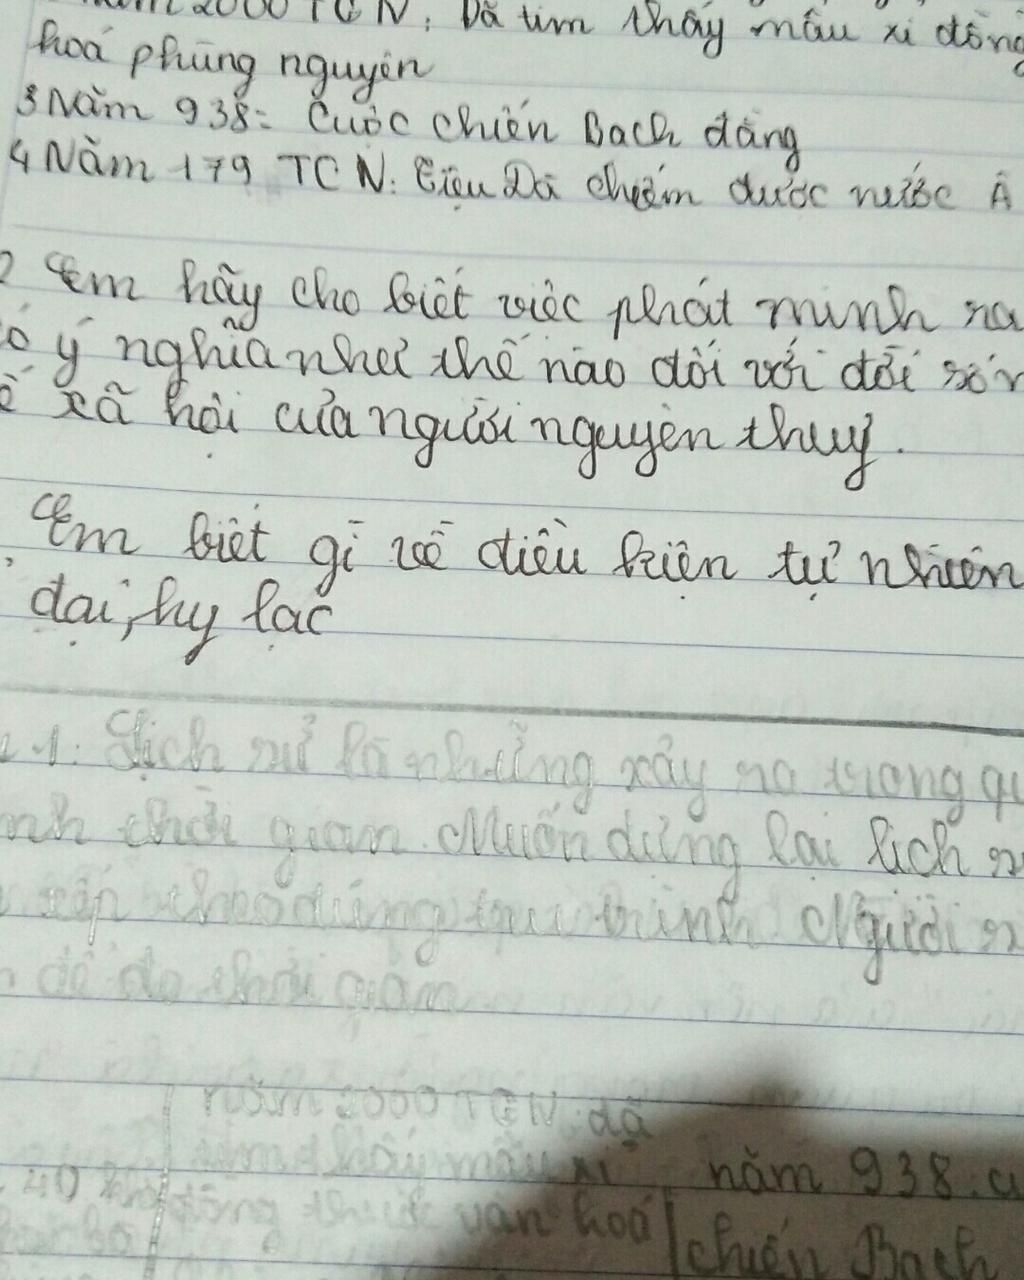 2000 TCN: Đã tìm thấy mẩu xỉ đồng
hoá phùng nguyên
3 Năm 938: Cuộc chiến Bạch đằng
4 Năm 179 TCN: Triệu Đà chiếm được nước Â
2 Em hãy cho biết việc phát minh ra
ó ý nghĩa như thế nào đối với đời sốn
xã hội của người nguyên thuỷ.
Em biết gì về điều kiện tự nhiên
đại, hy lạc
1. Lịch sử là những xảy ra trong qu
thời gian. Muốn dựng lại lịch s
xếp theo đúng trình Người
để đo thời gian
năm 2000 TCN: đã
tìm thấy mẩu xỉ năm 938: c
40 đồng thuộc văn hoá chiến Bạch